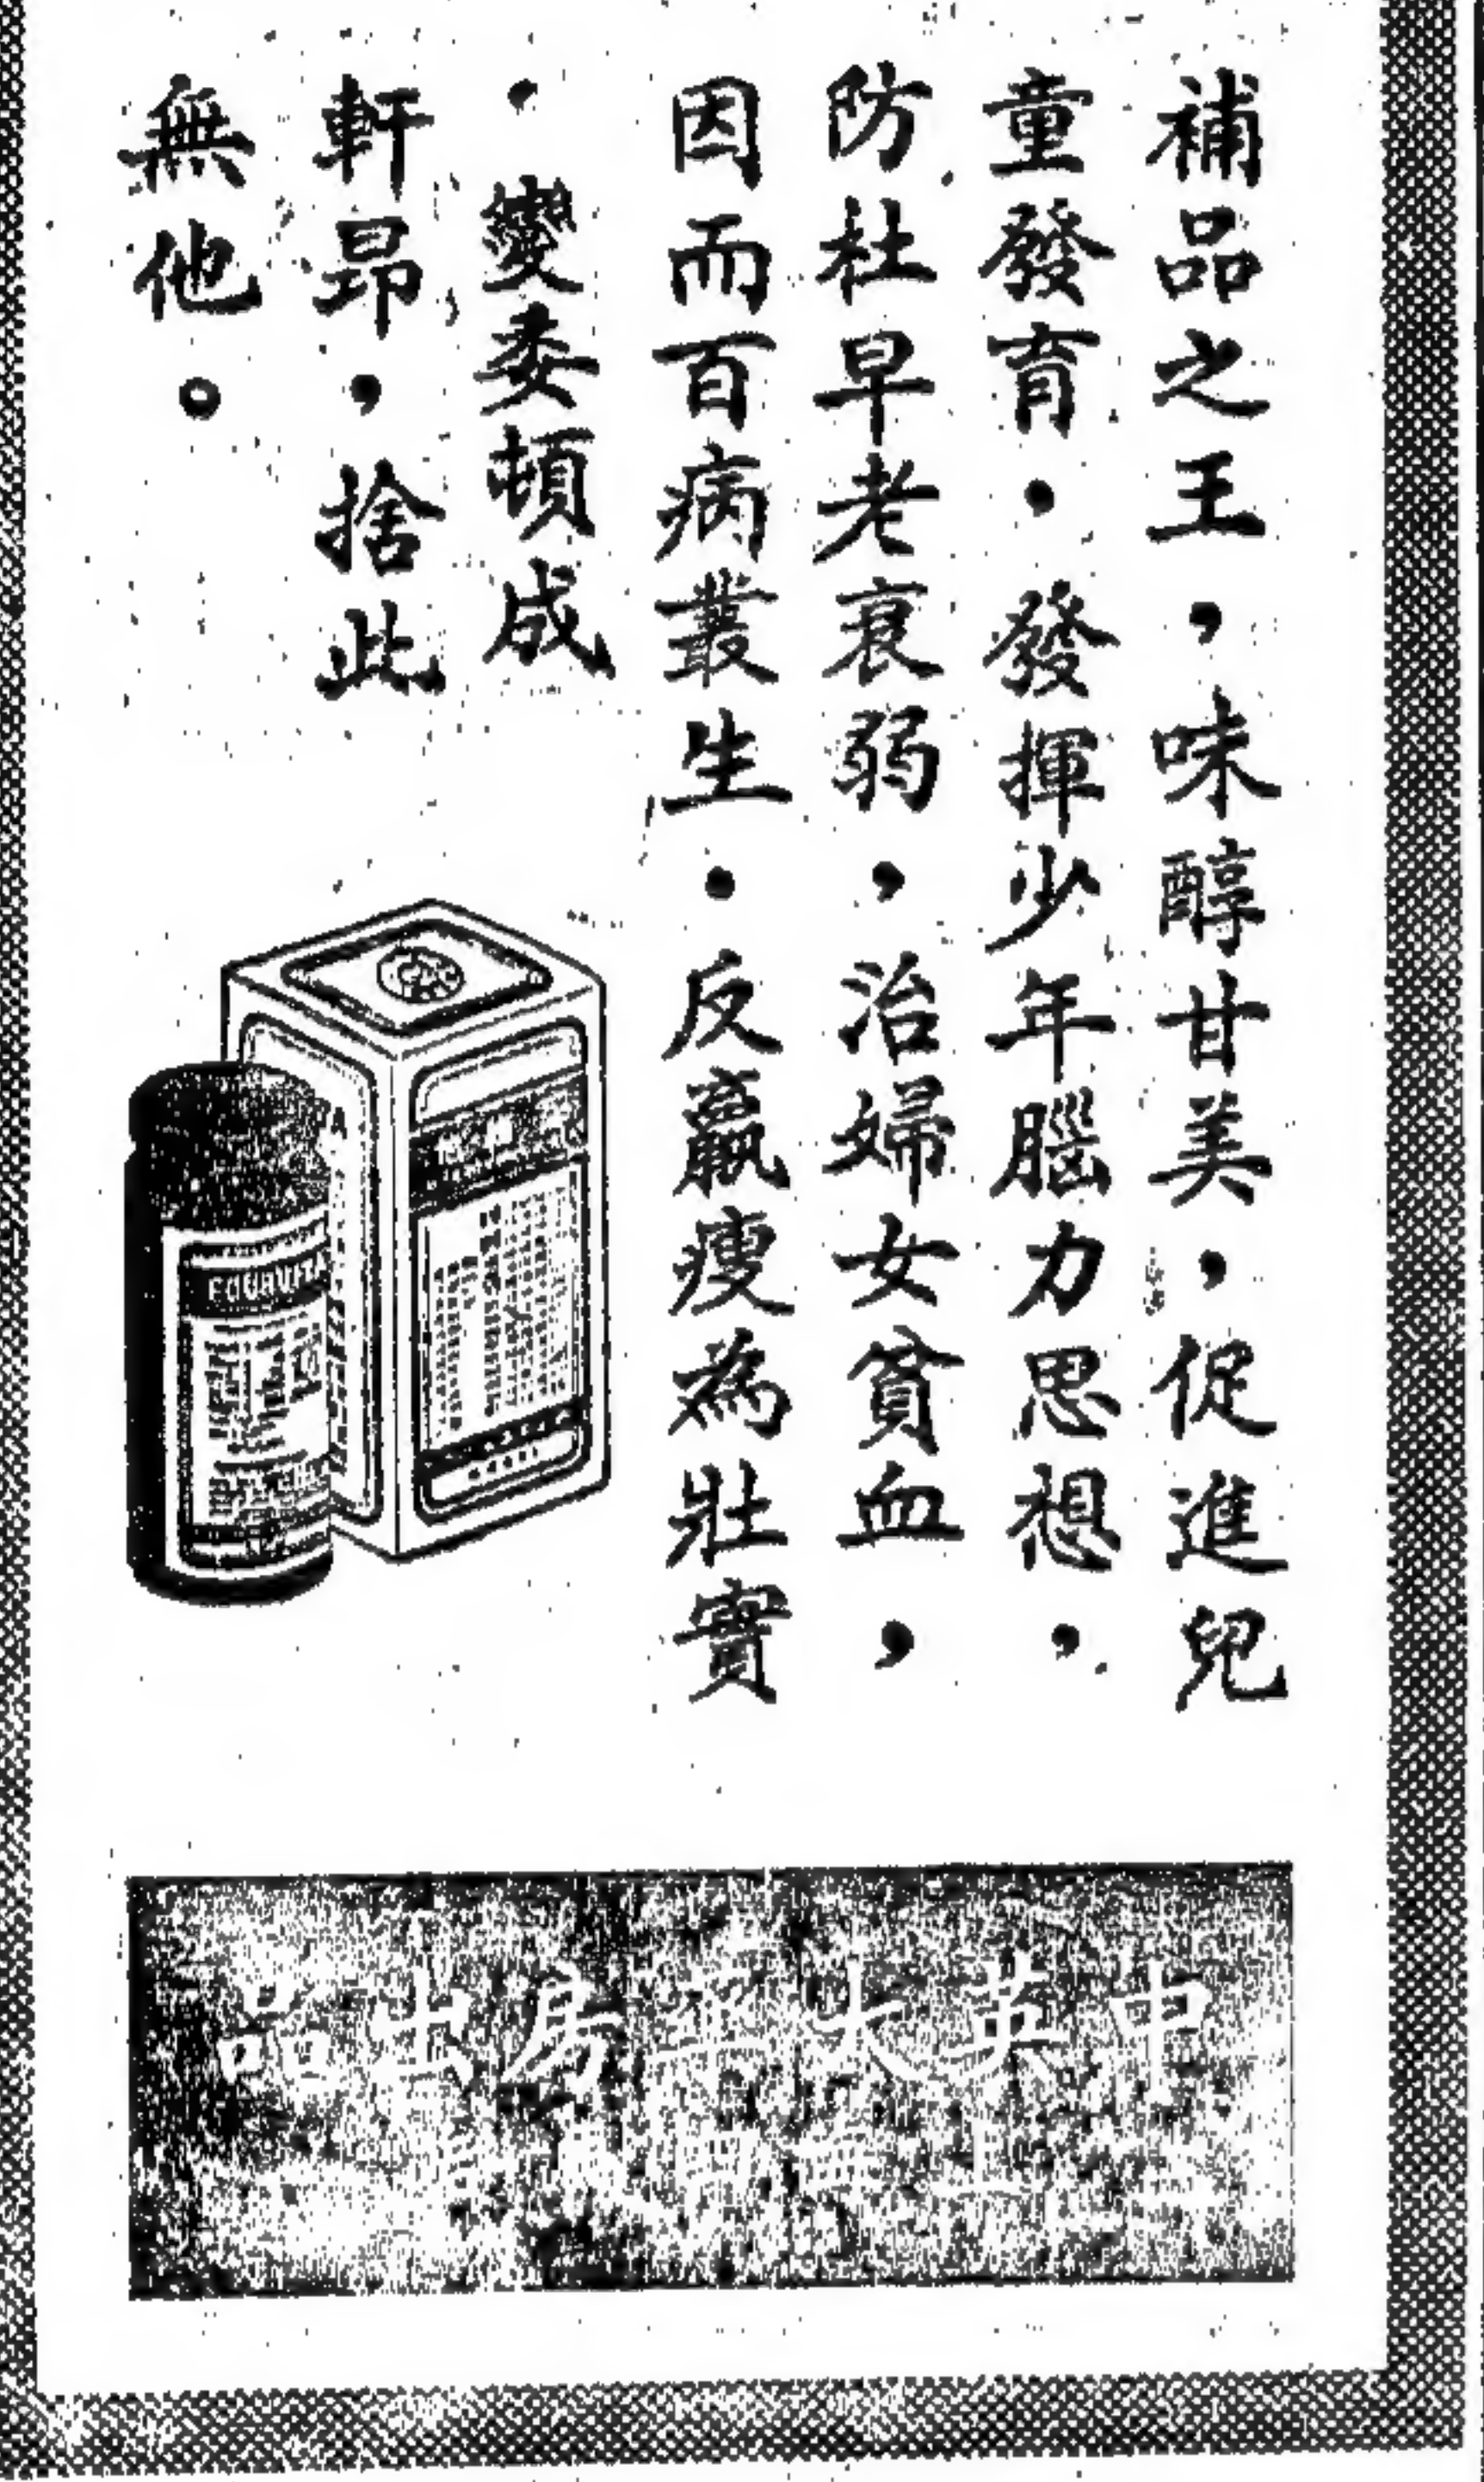 補品之王，味醇甘美，促進兒
童發育．發揮少年腦力思想，
防杜早老衰弱，治婦女貧血，
因而百病叢生．反羸瘦為壯實
．變委頓成
軒昂，捨此
無他。
FOURVITA
中英大藥房出品